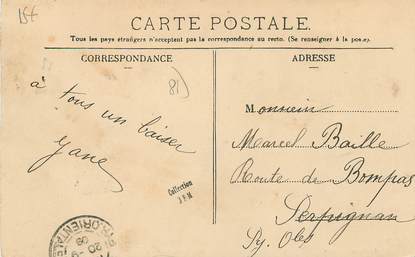 15€
CARTE POSTALE.
Tous les pays étrangers n'acceptent pas la correspondance au recto. (Se renseigner à la poste).
CORRESPONDANCE
ADRESSE
81
à tous un baiser
Jane
Monsieur
Marcel Baille
Route de Bompas
Perpignan
Py. Oles
Collection
ORIENTALES
20
09